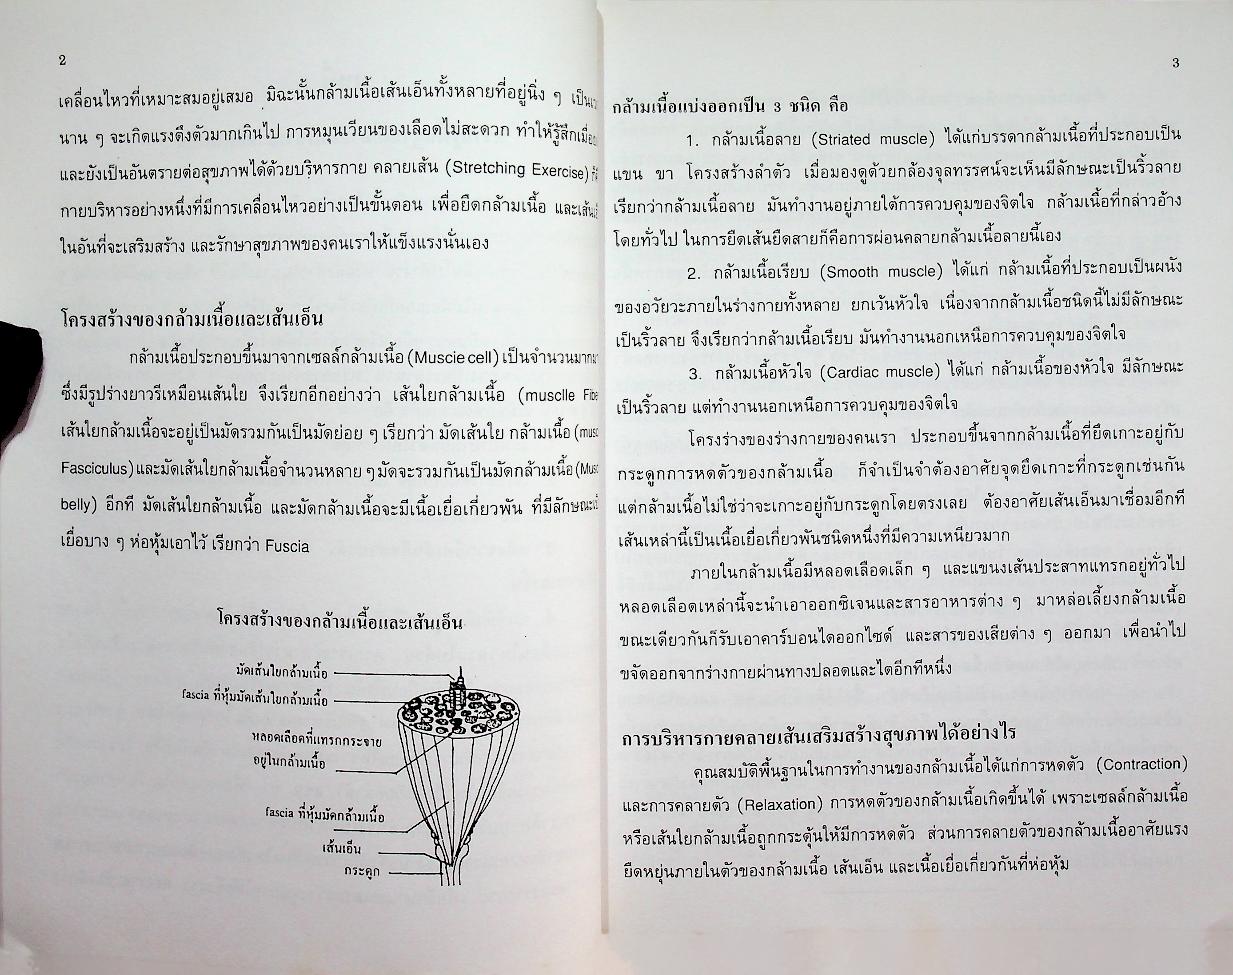 2
เคลื่อนไหวที่เหมาะสมอยู่เสมอ มิฉะนั้นกล้ามเนื้อเส้นเอ็นทั้งหลายที่อยู่นิ่ง ๆ เป็น
นาน ๆ จะเกิดแรงตึงตัวมากเกินไป การหมุนเวียนของเลือดไม่สะดวก ทำให้รู้สึก
และยังเป็นอันตรายต่อสุขภาพได้ด้วยบริหารกาย คลายเส้น (Stretching Exercise)
กายบริหารอย่างหนึ่งที่มีการเคลื่อนไหวอย่างเป็นขั้นตอน เพื่อยืดกล้ามเนื้อ
ในอันที่จะเสริมสร้าง และรักษาสุขภาพของคนเราให้แข็งแรงนั่นเอง
โครงสร้างของกล้ามเนื้อและเส้นเอ็น
กล้ามเนื้อประกอบขึ้นมาจากเซลล์กล้ามเนื้อ (Muscie cell) เป็นจำนวนมาก
ซึ่งมีรูปร่างยาวรีเหมือนเส้นใย จึงเรียกอีกอย่างว่า เส้นใยกล้ามเนื้อ (musclle
เส้นใยกล้ามเนื้อจะอยู่เป็นมัดรวมกันเป็นมัดย่อย ๆ เรียกว่า มัดเส้นใย กล้ามเนื้อ
Fasciculus) และมัดเส้นใยกล้ามเนื้อจำนวนหลาย ๆ มัดจะรวมกันเป็นมัดกล้ามเนื้อ
belly) อีกที มัดเส้นใยกล้ามเนื้อ และมัดกล้ามเนื้อจะมีเนื้อเยื่อเกี่ยวพัน ที่มีลักษณะ
เยื่อบาง ๆ ห่อหุ้มเอาไว้ เรียกว่า Fuscia
โครงสร้างของกล้ามเนื้อและเส้นเอ็น
มัดเส้นใยกล้ามเนื้อ
fascia ที่หุ้มมัดเส้นใยกล้ามเนื้อ
หลอดเลือดที่แทรกกระจาย
อยู่ในกล้ามเนื้อ
fascia ที่หุ้มมัดกล้ามเนื้อ
เส้นเอ็น
กระดูก
3
กล้ามเนื้อแบ่งออกเป็น 3 ชนิด คือ
1. กล้ามเนื้อลาย (Striated muscle) ได้แก่บรรดากล้ามเนื้อที่ประกอบเป็น
แขน ขา โครงสร้างลำตัว เมื่อมองดูด้วยกล้องจุลทรรศน์จะเห็นมีลักษณะเป็นริ้วลาย
เรียกว่ากล้ามเนื้อลาย มันทำงานอยู่ภายใต้การควบคุมของจิตใจ กล้ามเนื้อที่กล่าวอ้าง
โดยทั่วไป ในการยืดเส้นยืดสายก็คือการผ่อนคลายกล้ามเนื้อลายนี้เอง
2. กล้ามเนื้อเรียบ (Smooth muscle) ได้แก่ กล้ามเนื้อที่ประกอบเป็นผนัง
ของอวัยวะภายในร่างกายทั้งหลาย ยกเว้นหัวใจ เนื่องจากกล้ามเนื้อชนิดนี้ไม่มีลักษณะ
เป็นริ้วลาย จึงเรียกว่ากล้ามเนื้อเรียบ มันทำงานนอกเหนือการควบคุมของจิตใจ
3. กล้ามเนื้อหัวใจ (Cardiac muscle) ได้แก่ กล้ามเนื้อของหัวใจ มีลักษณะ
เป็นริ้วลาย แต่ทำงานนอกเหนือการควบคุมของจิตใจ
โครงร่างของร่างกายของคนเรา ประกอบขึ้นจากกล้ามเนื้อที่ยึดเกาะอยู่กับ
กระดูกการหดตัวของกล้ามเนื้อ ก็จำเป็นจำต้องอาศัยจุดยึดเกาะที่กระดูกเช่นกัน
แต่กล้ามเนื้อไม่ใช่ว่าจะเกาะอยู่กับกระดูกโดยตรงเลย ต้องอาศัยเส้นเอ็นมาเชื่อมอีกที
เส้นเหล่านี้เป็นเนื้อเยื่อเกี่ยวพันชนิดหนึ่งที่มีความเหนียวมาก
ภายในกล้ามเนื้อมีหลอดเลือดเล็ก ๆ และแขนงเส้นประสาทแทรกอยู่ทั่วไป
หลอดเลือดเหล่านี้จะนำเอาออกซิเจนและสารอาหารต่าง ๆ มาหล่อเลี้ยงกล้ามเนื้อ
ขณะเดียวกันก็รับเอาคาร์บอนไดออกไซด์ และสารของเสียต่าง ๆ ออกมา เพื่อนำไป
ขจัดออกจากร่างกายผ่านทางปลอดและไตอีกทีหนึ่ง
การบริหารกายคลายเส้นเสริมสร้างสุขภาพได้อย่างไร
คุณสมบัติพื้นฐานในการทำงานของกล้ามเนื้อได้แก่การหดตัว (Contraction)
และการคลายตัว (Relaxation) การหดตัวของกล้ามเนื้อเกิดขึ้นได้ เพราะเซลล์กล้ามเนื้อ
หรือเส้นใยกล้ามเนื้อถูกกระตุ้นให้มีการหดตัว ส่วนการคลายตัวของกล้ามเนื้ออาศัยแรง
ยืดหยุ่นภายในตัวของกล้ามเนื้อ เส้นเอ็น และเนื้อเยื่อเกี่ยวกันที่ห่อหุ้ม